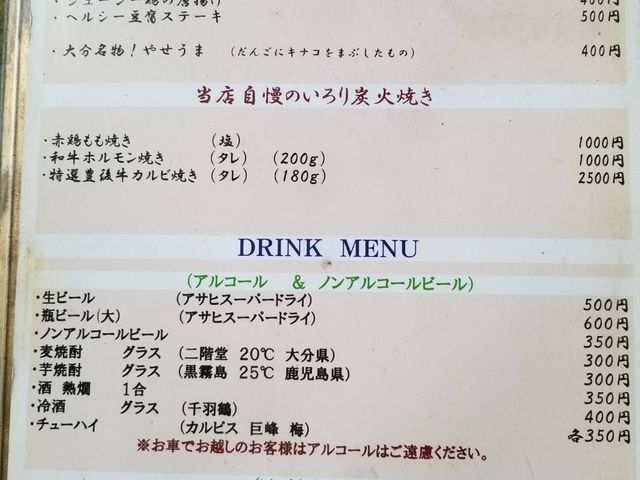 ・ジューシー鶏の唐揚げ 400円
・ヘルシー豆腐ステーキ 500円
・大分名物！やせうま （だんごにキナコをまぶしたもの） 400円
当店自慢のいろり炭火焼き
・赤鶏もも焼き （塩） 1000円
・和牛ホルモン焼き （タレ） （200g） 1000円
・特選豊後牛カルビ焼き （タレ） （180g） 2500円
DRINK MENU
（アルコール ＆ ノンアルコールビール）
・生ビール （アサヒスーパードライ） 500円
・瓶ビール（大） （アサヒスーパードライ） 600円
・ノンアルコールビール 350円
・麦焼酎 グラス （二階堂 20℃ 大分県） 300円
・芋焼酎 グラス （黒霧島 25℃ 鹿児島県） 300円
・酒 熱燗 1合 350円
・冷酒 グラス （千羽鶴） 400円
・チューハイ （カルピス 巨峰 梅） 各350円
※お車でお越しのお客様はアルコールはご遠慮ください。